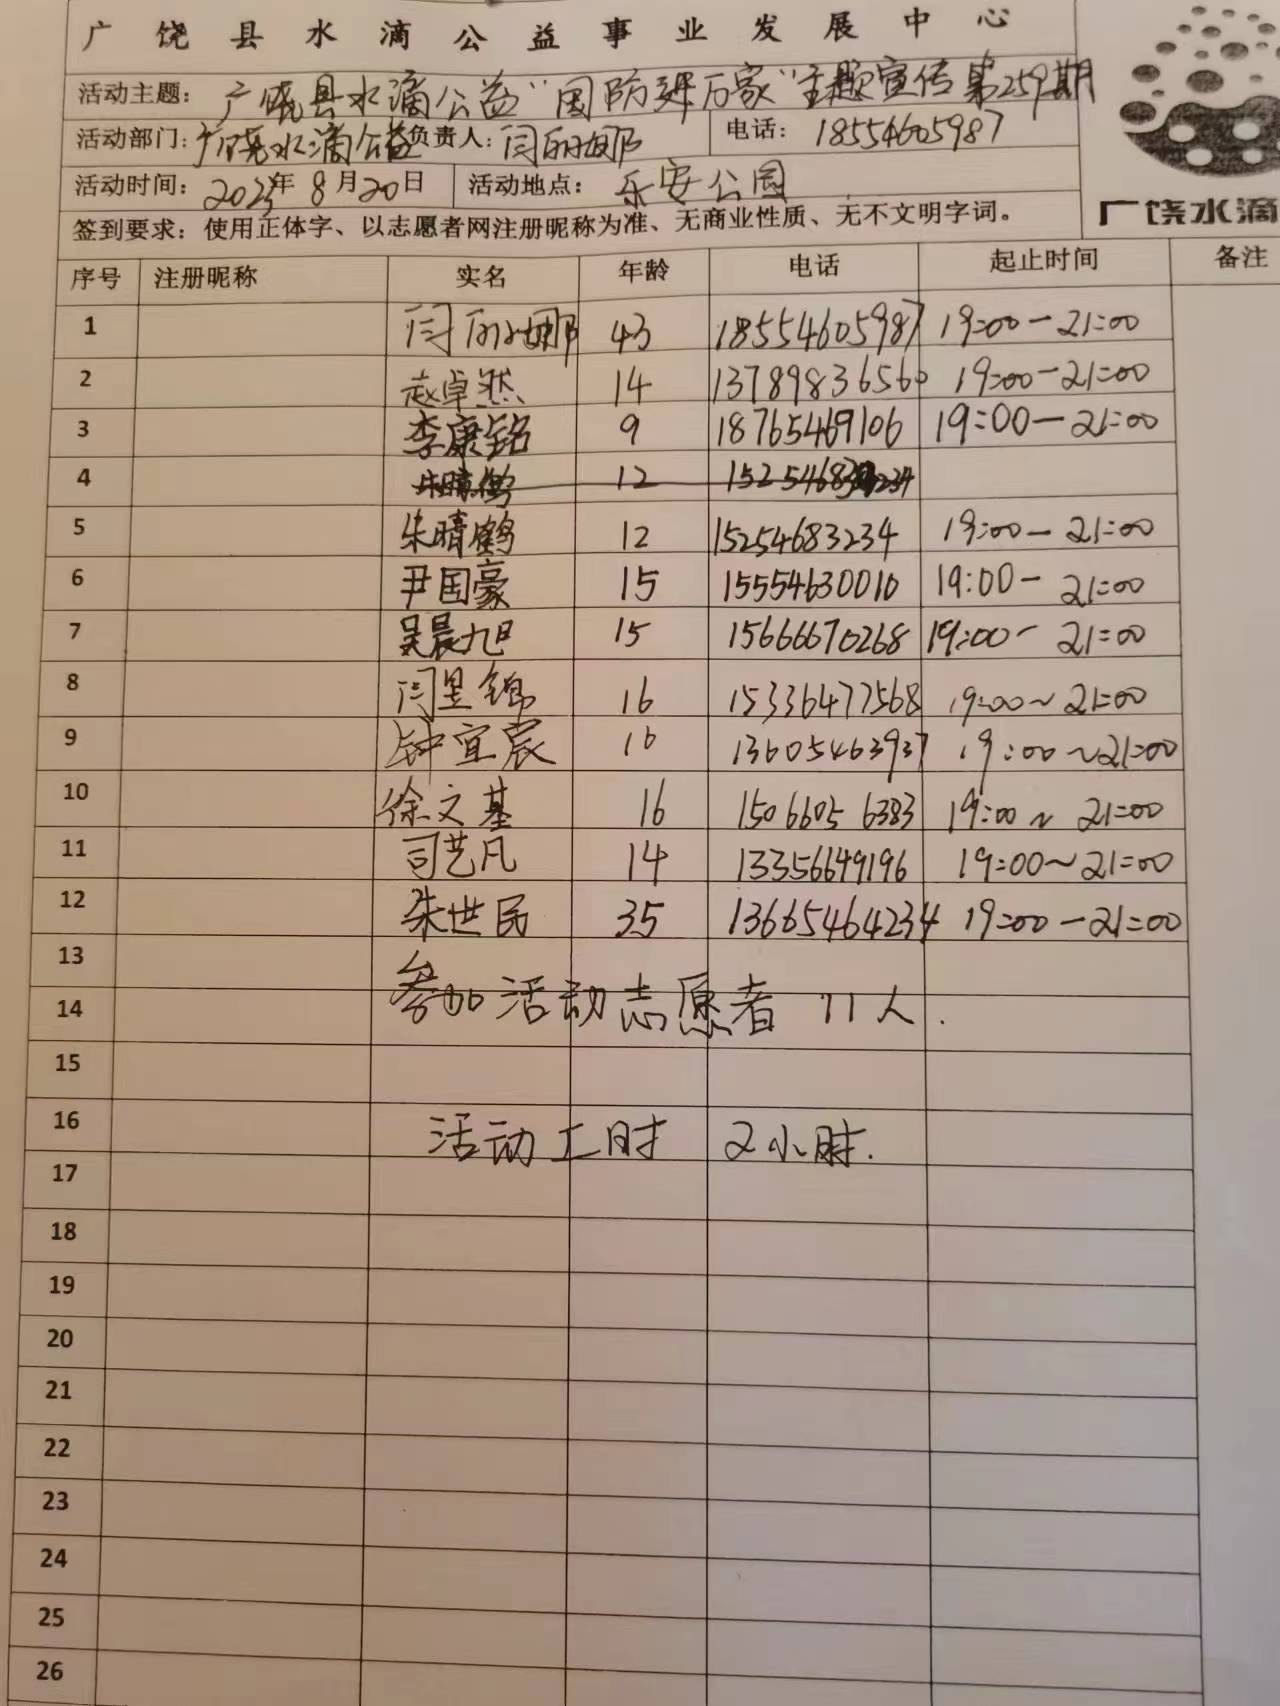 广饶县水滴公益事业发展中心
活动主题：广饶县水滴公益"国防进万家"主题宣传第259期
活动部门：广饶水滴公益 负责人：闫丽娜 电话：18554605987
活动时间：2023年8月20日 活动地点：乐安公园
广饶水滴
签到要求：使用正体字、以志愿者网注册昵称为准、无商业性质、无不文明字词。
序号 注册昵称 实名 年龄 电话 起止时间 备注
1 闫丽娜 43 18554605987 19:00-21:00
2 赵卓然 14 13789836560 19:00-21:00
3 李康铭 9 18765469106 19:00-21:00
4 朱晴鹤 12
5 朱晴鹤 12 15254683234 19:00-21:00
6 尹国豪 15 15554630010 19:00-21:00
7 吴晨旭 15 15666670268 19:00-21:00
8 闫昱锦 16 15336477568 19:00~21:00
9 钟宜宸 16 13605463937 19:00~21:00
10 徐文基 16 15066056383 19:00~21:00
11 司艺凡 14 13356649196 19:00~21:00
12 朱世民 35 13665464234 19:00-21:00
13
参加活动志愿者 11人.
14
15
16
活动工时 2小时.
17
18
19
20
21
22
23
24
25
26